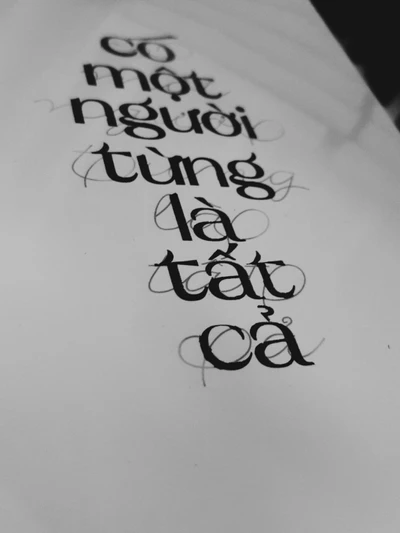 có
một
người
từng
là
tất
cả